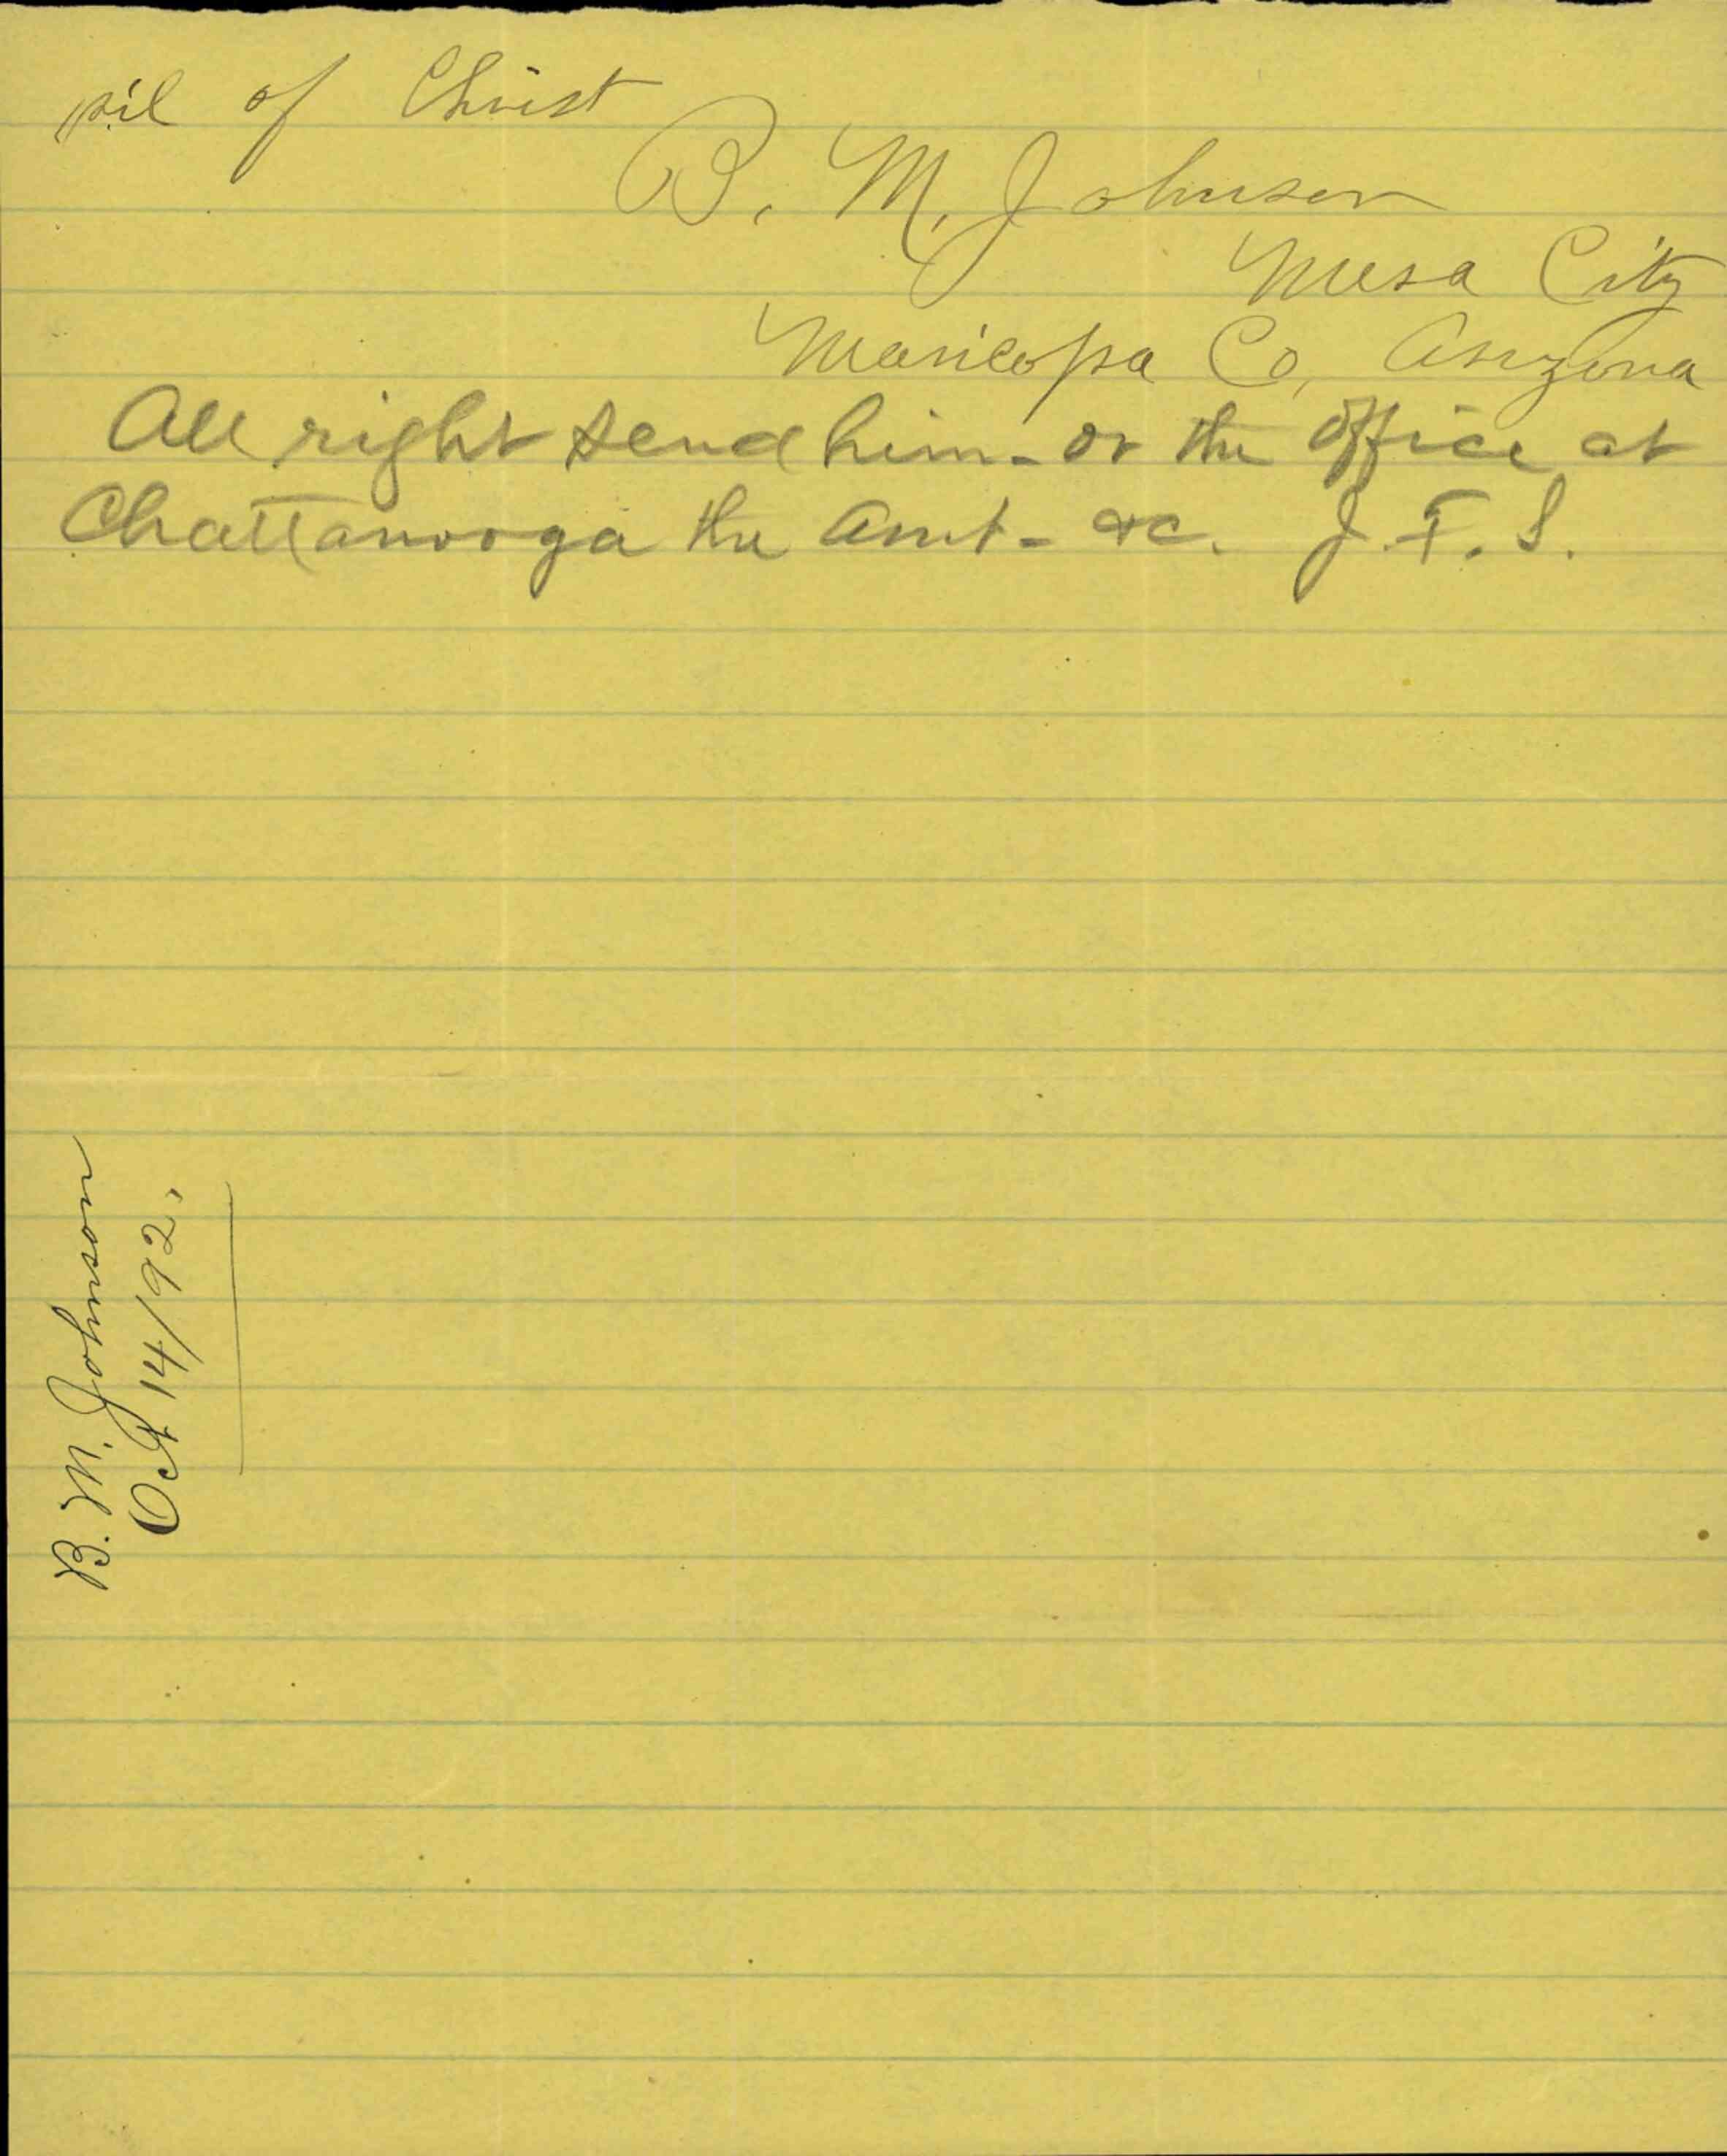 pil of Christ
B. M. Johnson
Mesa City
Maricopa Co, Arizona
All right send him - or the office at
Chattanooga the amt - &c. J. F. S.
B. M. Johnson
Oct 14/92.